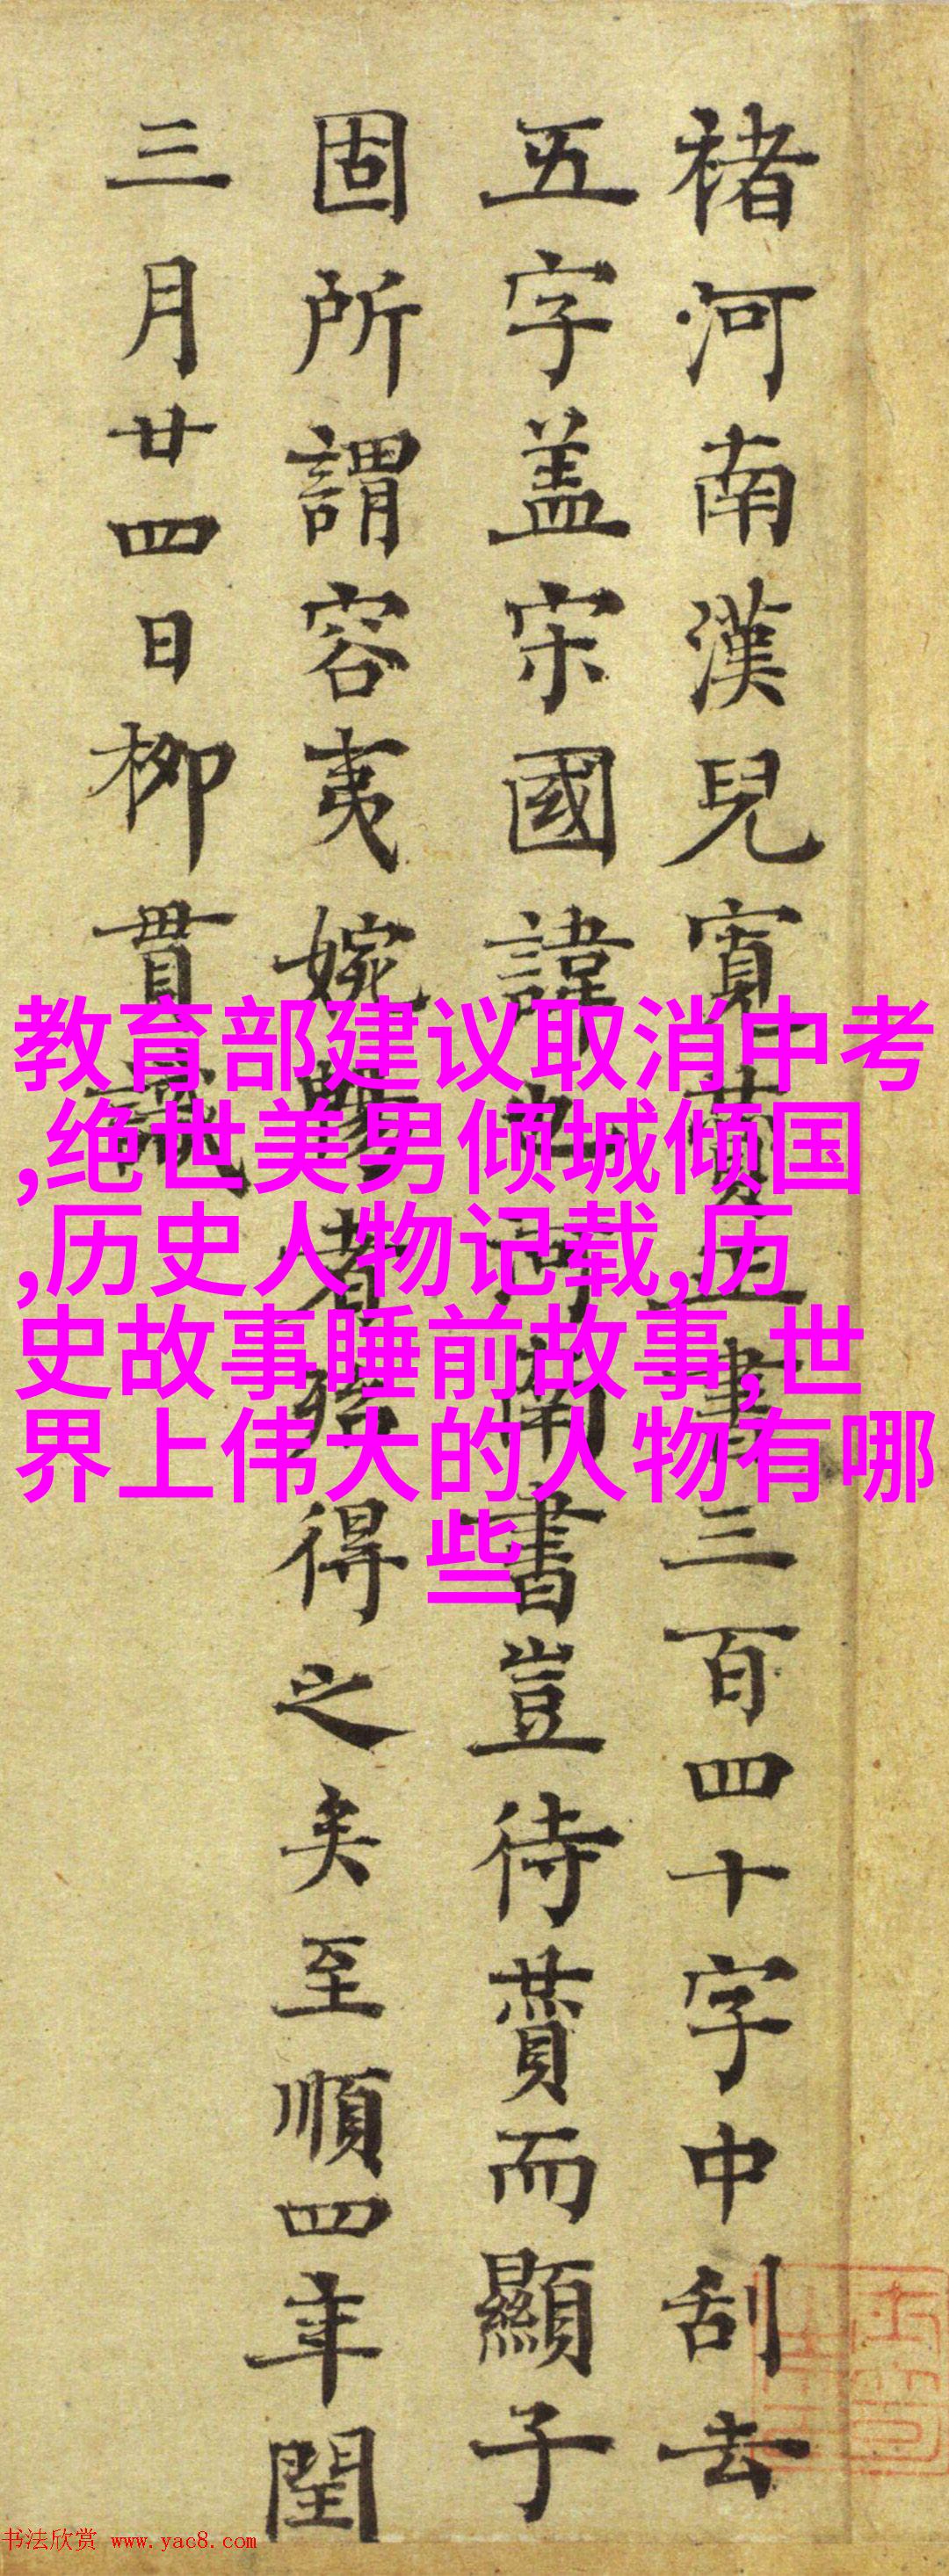 褚河南漢兒寬賛正書三百四十字中刮去
五字盖宋國諱也河南書豈待賛而顯子
固所謂容夷婉暢者殆得之矣至順四年閏
三月廿四日柳貫識
教育部建议取消中考
,绝世美男倾城倾国
,历史人物记载,历
史故事睡前故事,世
界上伟大的人物有哪
些
书法欣赏 www.yac8.com